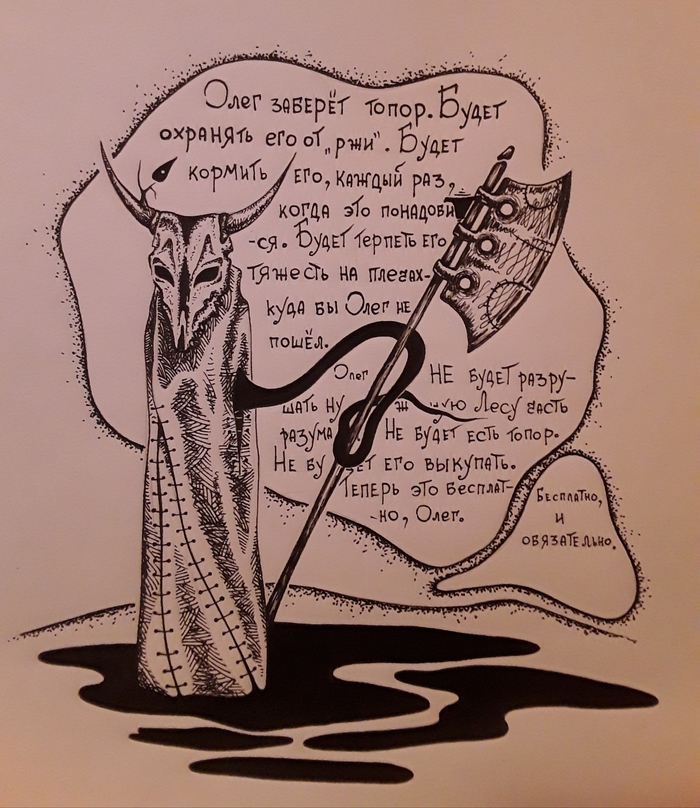 Олег заберёт топор. Будет
охранять его от „ржи". Будет
кормить его, каждый раз,
когда это понадоби
-ся. Будет терпеть его
тяжесть на плечах-
куда бы Олег не
пошёл.
Олег НЕ будет разру-
шать ну ж ную Лесу часть
разума Не будет есть топор.
Не бу дет его выкупать.
Теперь это бесплат-
-но, Олег.
Бесплатно,
и
обязательно.